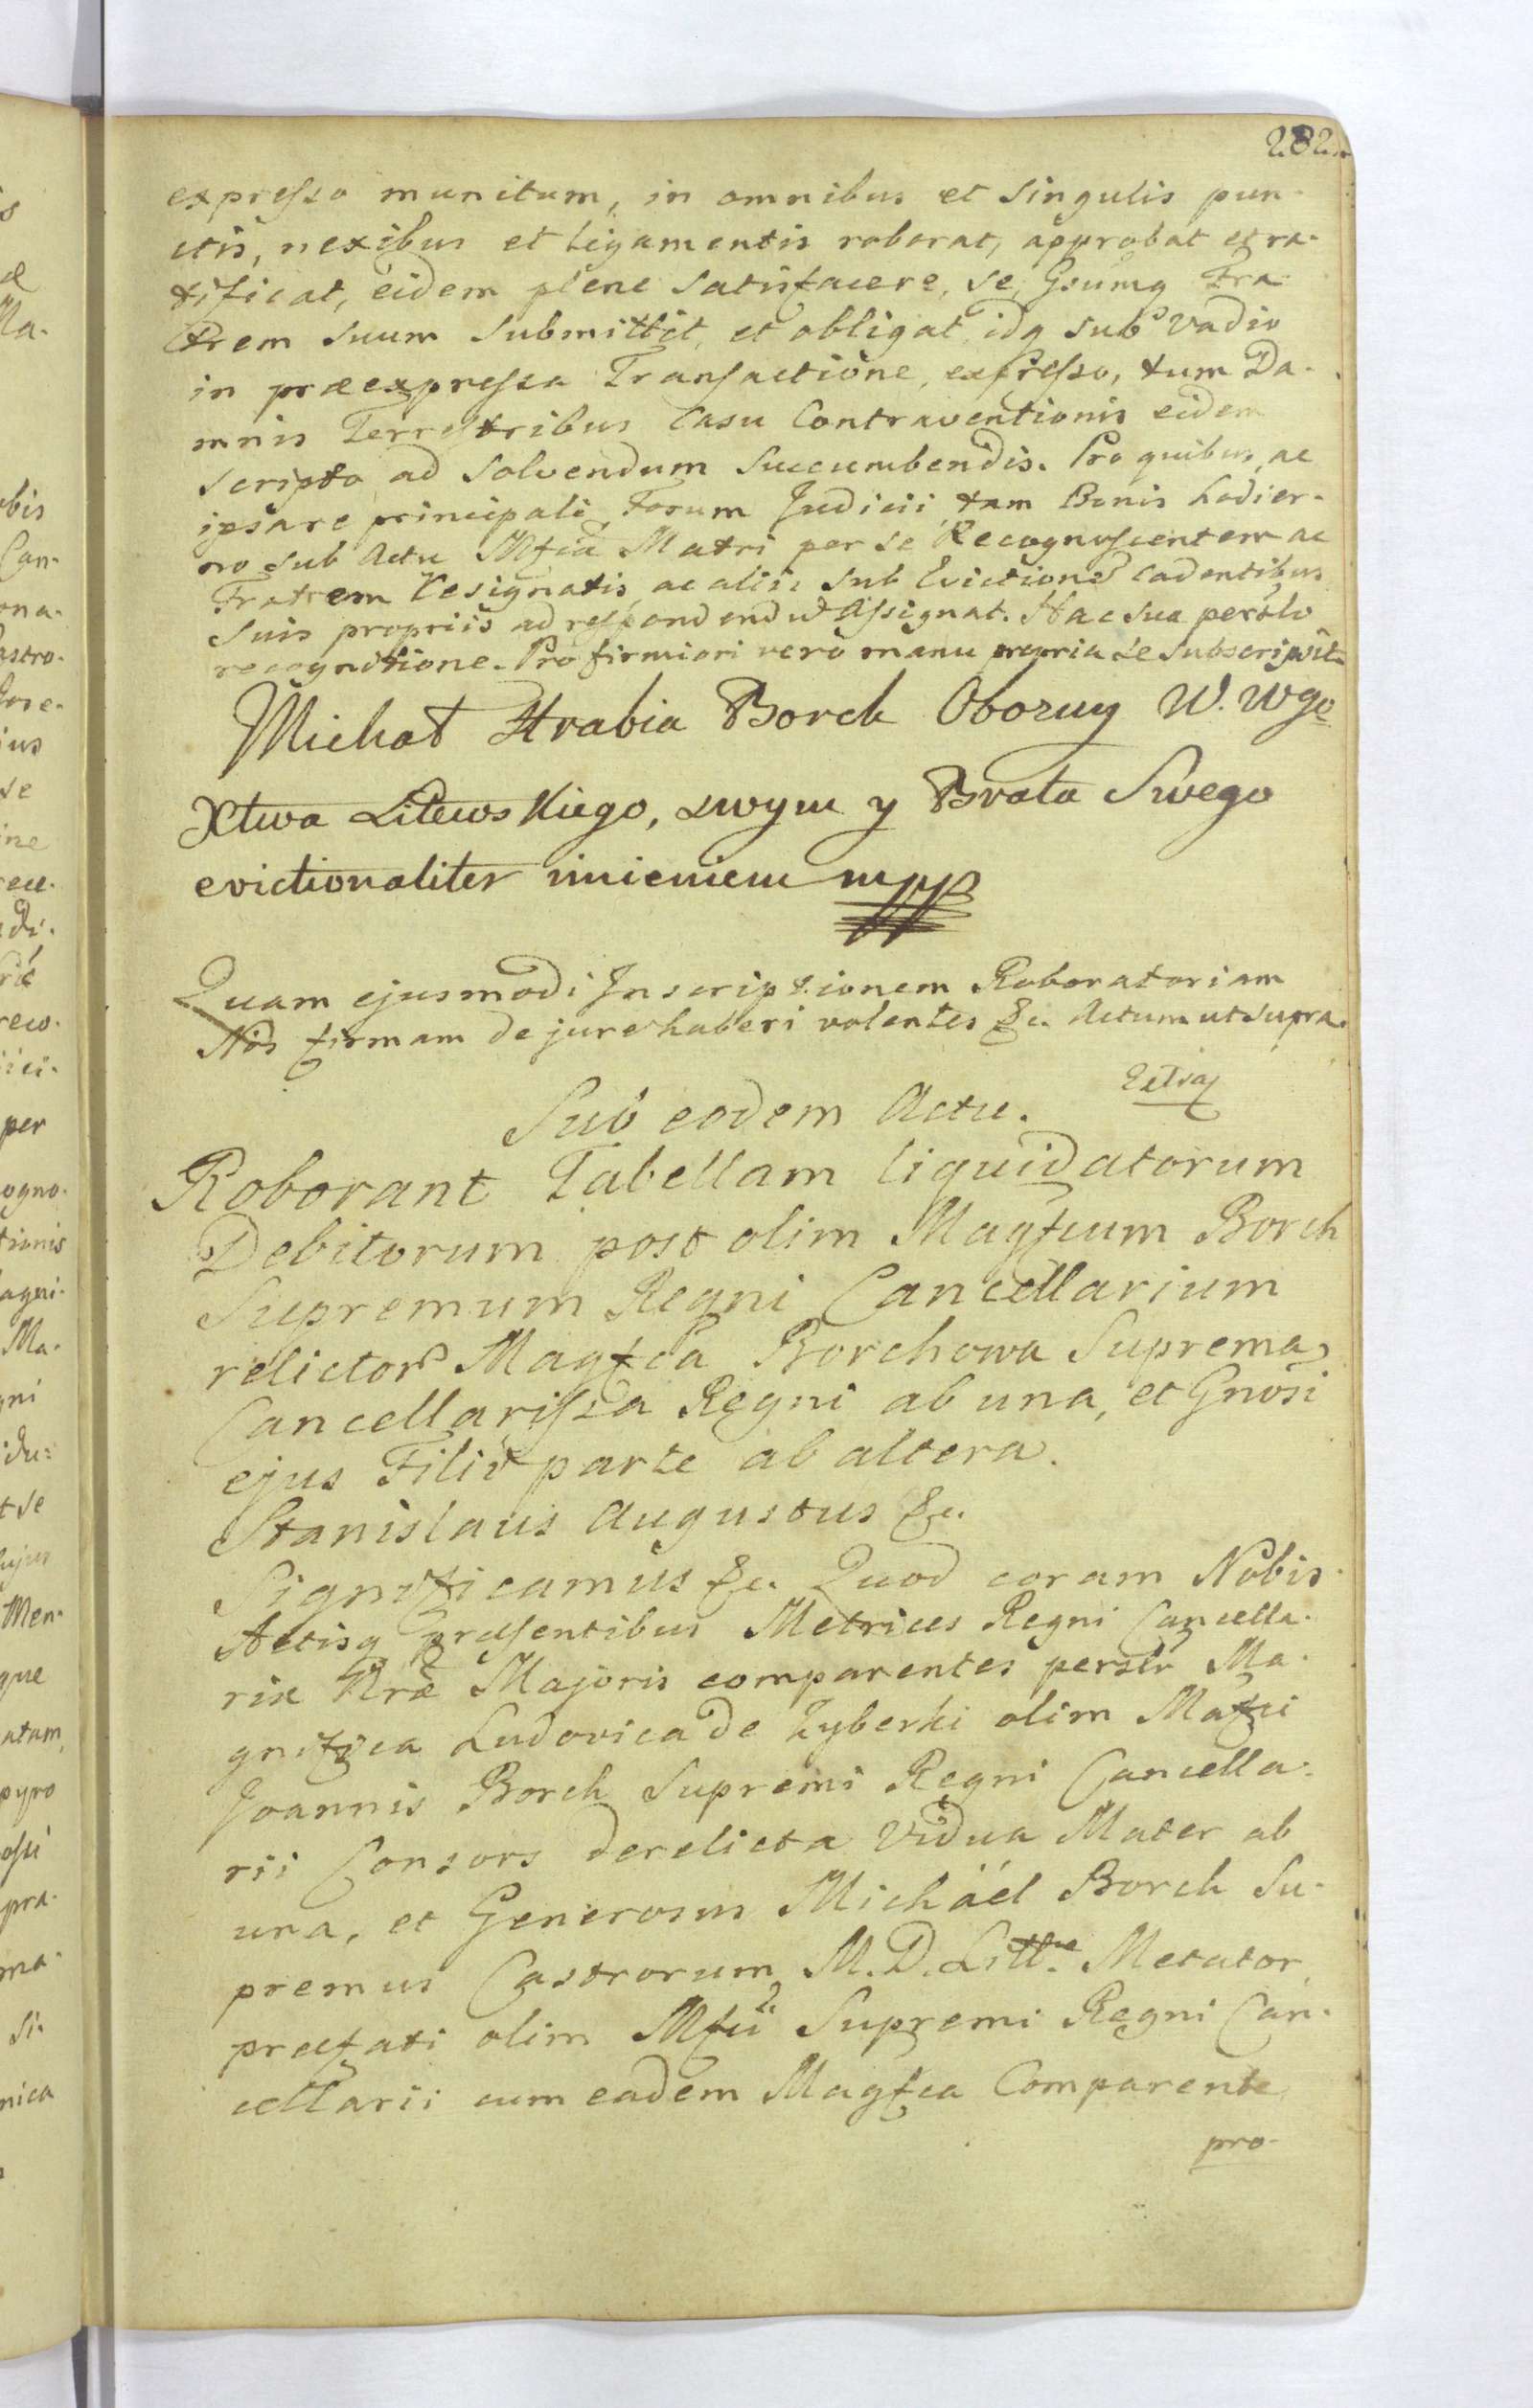 282.
expresso munitum, in omnibus et singulis pun-
ctis, nexibus et ligamentis roborat, approbat et ra-
tificat, eidem plene satisfacere, se, Gsumq Fra-
trem suum submittit, et obligat idq sub vadio
in præexpressa Transactione, expresso, tum Da-
mnis Terrestribus casu Contraventionis eidem
scripto ad solvendum succumbendis. Pro quibus, ac
ipsa re principali Forum Judicii, tam Bonis hodier-
no sub Actu Mfcæ Matri per se Recognoscentem ac
Fratrem resignatis, ac aliis sub Evictione cadentibus
suis propriis ad respondendū Assignat. Hac sua persli
recognitione. Pro firmiori vero manu propria se subscripsit.
Michał Hrabia Borch Oboźny W. Wgo
Xtwa Litewskiego, swym y Brata Swego
evictionaliter imieniem mpp
Quam ejusmodi Inscriptionem Roboratoriam
Nos firmam de jure haberi volentes &c. Actum ut supra.
Sub eodem Actu.
Roborant Tabellam liquidatorum
Debitorum post olim Magfcum Borch
Supremum Regni Cancellarium
relictor Magfca Borchowa Suprema
Cancellarissa Regni ab una, et Gnosi
ejus Filii parte ab altera.
Stanislaus Augustus &c.
Significamus &c. Quod coram Nobis
Actisq præsentibus Metrices Regni Cancella-
riæ Nræ Majoris comparentes perslr Ma-
gnifica Ludovica de Zyberki olim Mafci
Joannis Borch Supremi Regni Cancella-
rii Consors derelicta Vidua Mater ab
una, et Generosus Michäel Borch Su-
premus Castrorum M. D. Littuæ Metator,
præfati olim Mfci Supremi Regni Can-
cellarii cum eadem Magfca Comparente
pro-